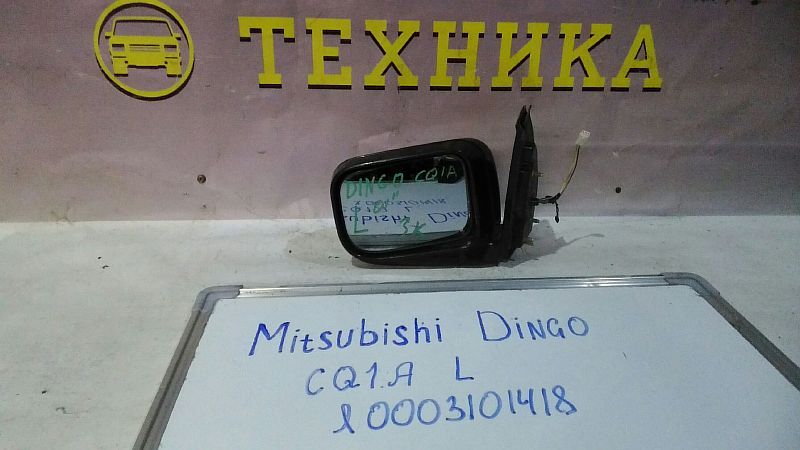 ТЕХНИКА
DINGO CQ1A
L
Mitsubishi DINGO
CQ1.A L
10003101418